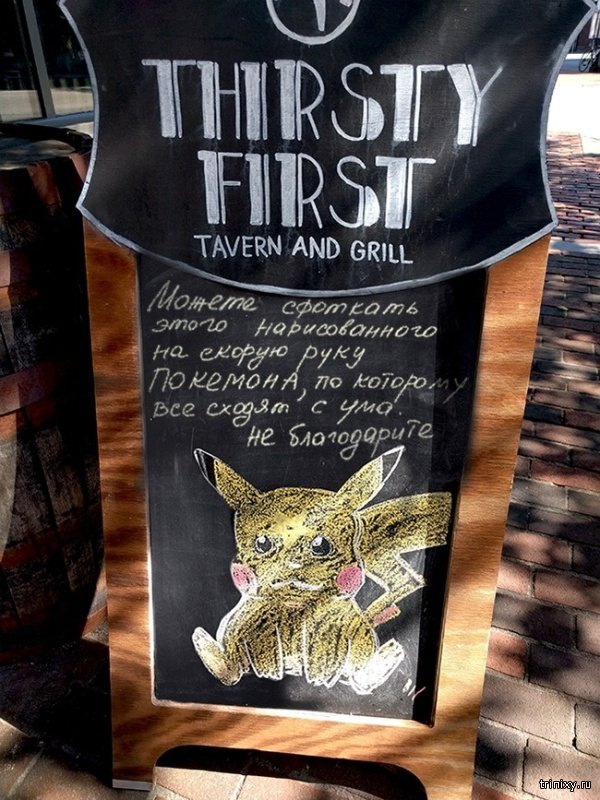 THIRSTY
FIRST
TAVERN AND GRILL
Можете сфоткать
этого нарисованного
на скорую руку
ПОКЕМОНА, по которому
все сходят с ума.
Не благодарите
trinixy.ru